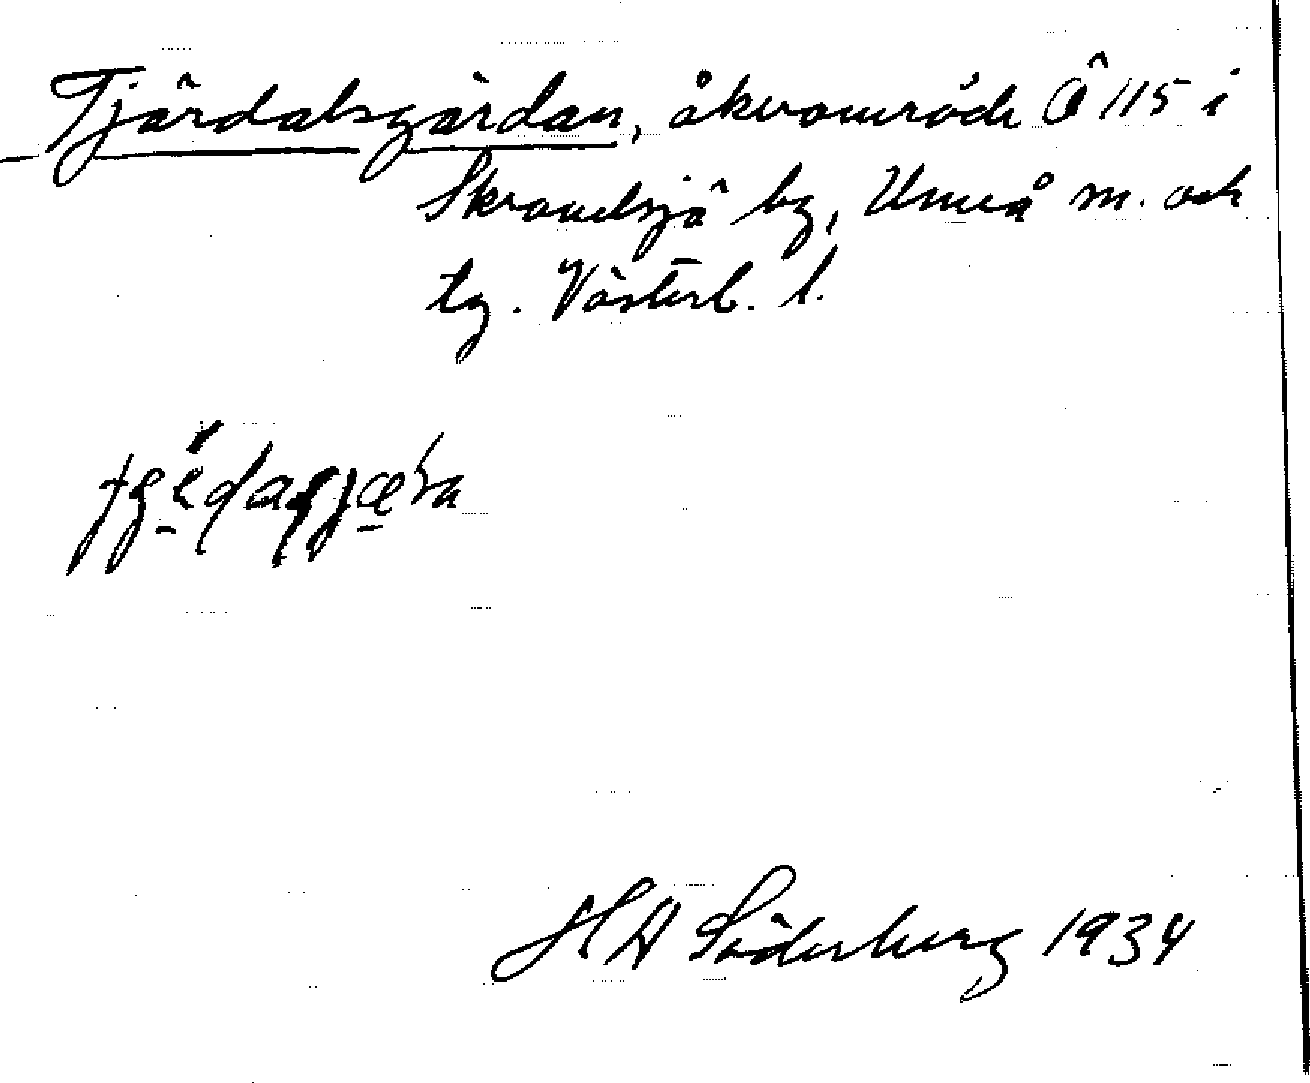 Tjärdalsgärdan, åkerområde Ö 115 i
Skravelsjö by, Umeå m. och
tg. Västerb. l.
H A Söderberg 1934